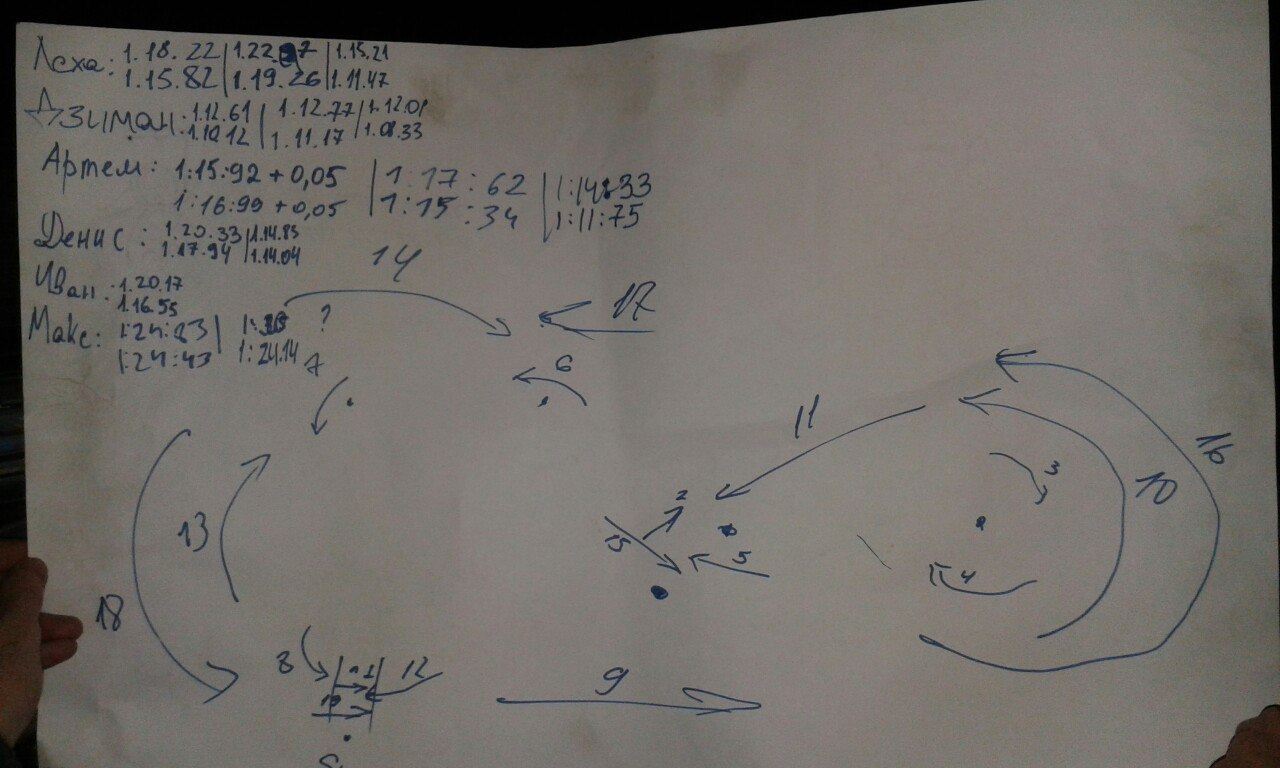 Леха: 1.18.22 | 1.22. 7 | 1.15.21
1.15.82 | 1.19.26 | 1.11.47
Дзиман: 1.12.61 | 1.12.77 | 1.12.01
1.10.12 | 1.11.17 | 1.08.33
Артем: 1:15:92 + 0,05 | 1:17:62 | 1:14:33
1:16:99 + 0,05 | 1:15:34 | 1:11:75
Денис: 1.20.33 | 1.14.85
1.17.94 | 1.14.04
Иван: 1.20.17
1.16.55
Макс: 1:24:23 | ?
1:24:43 | 1:24.14
14
17
6
11
16
3
10
2
13
15
5
4
18
8
12
9